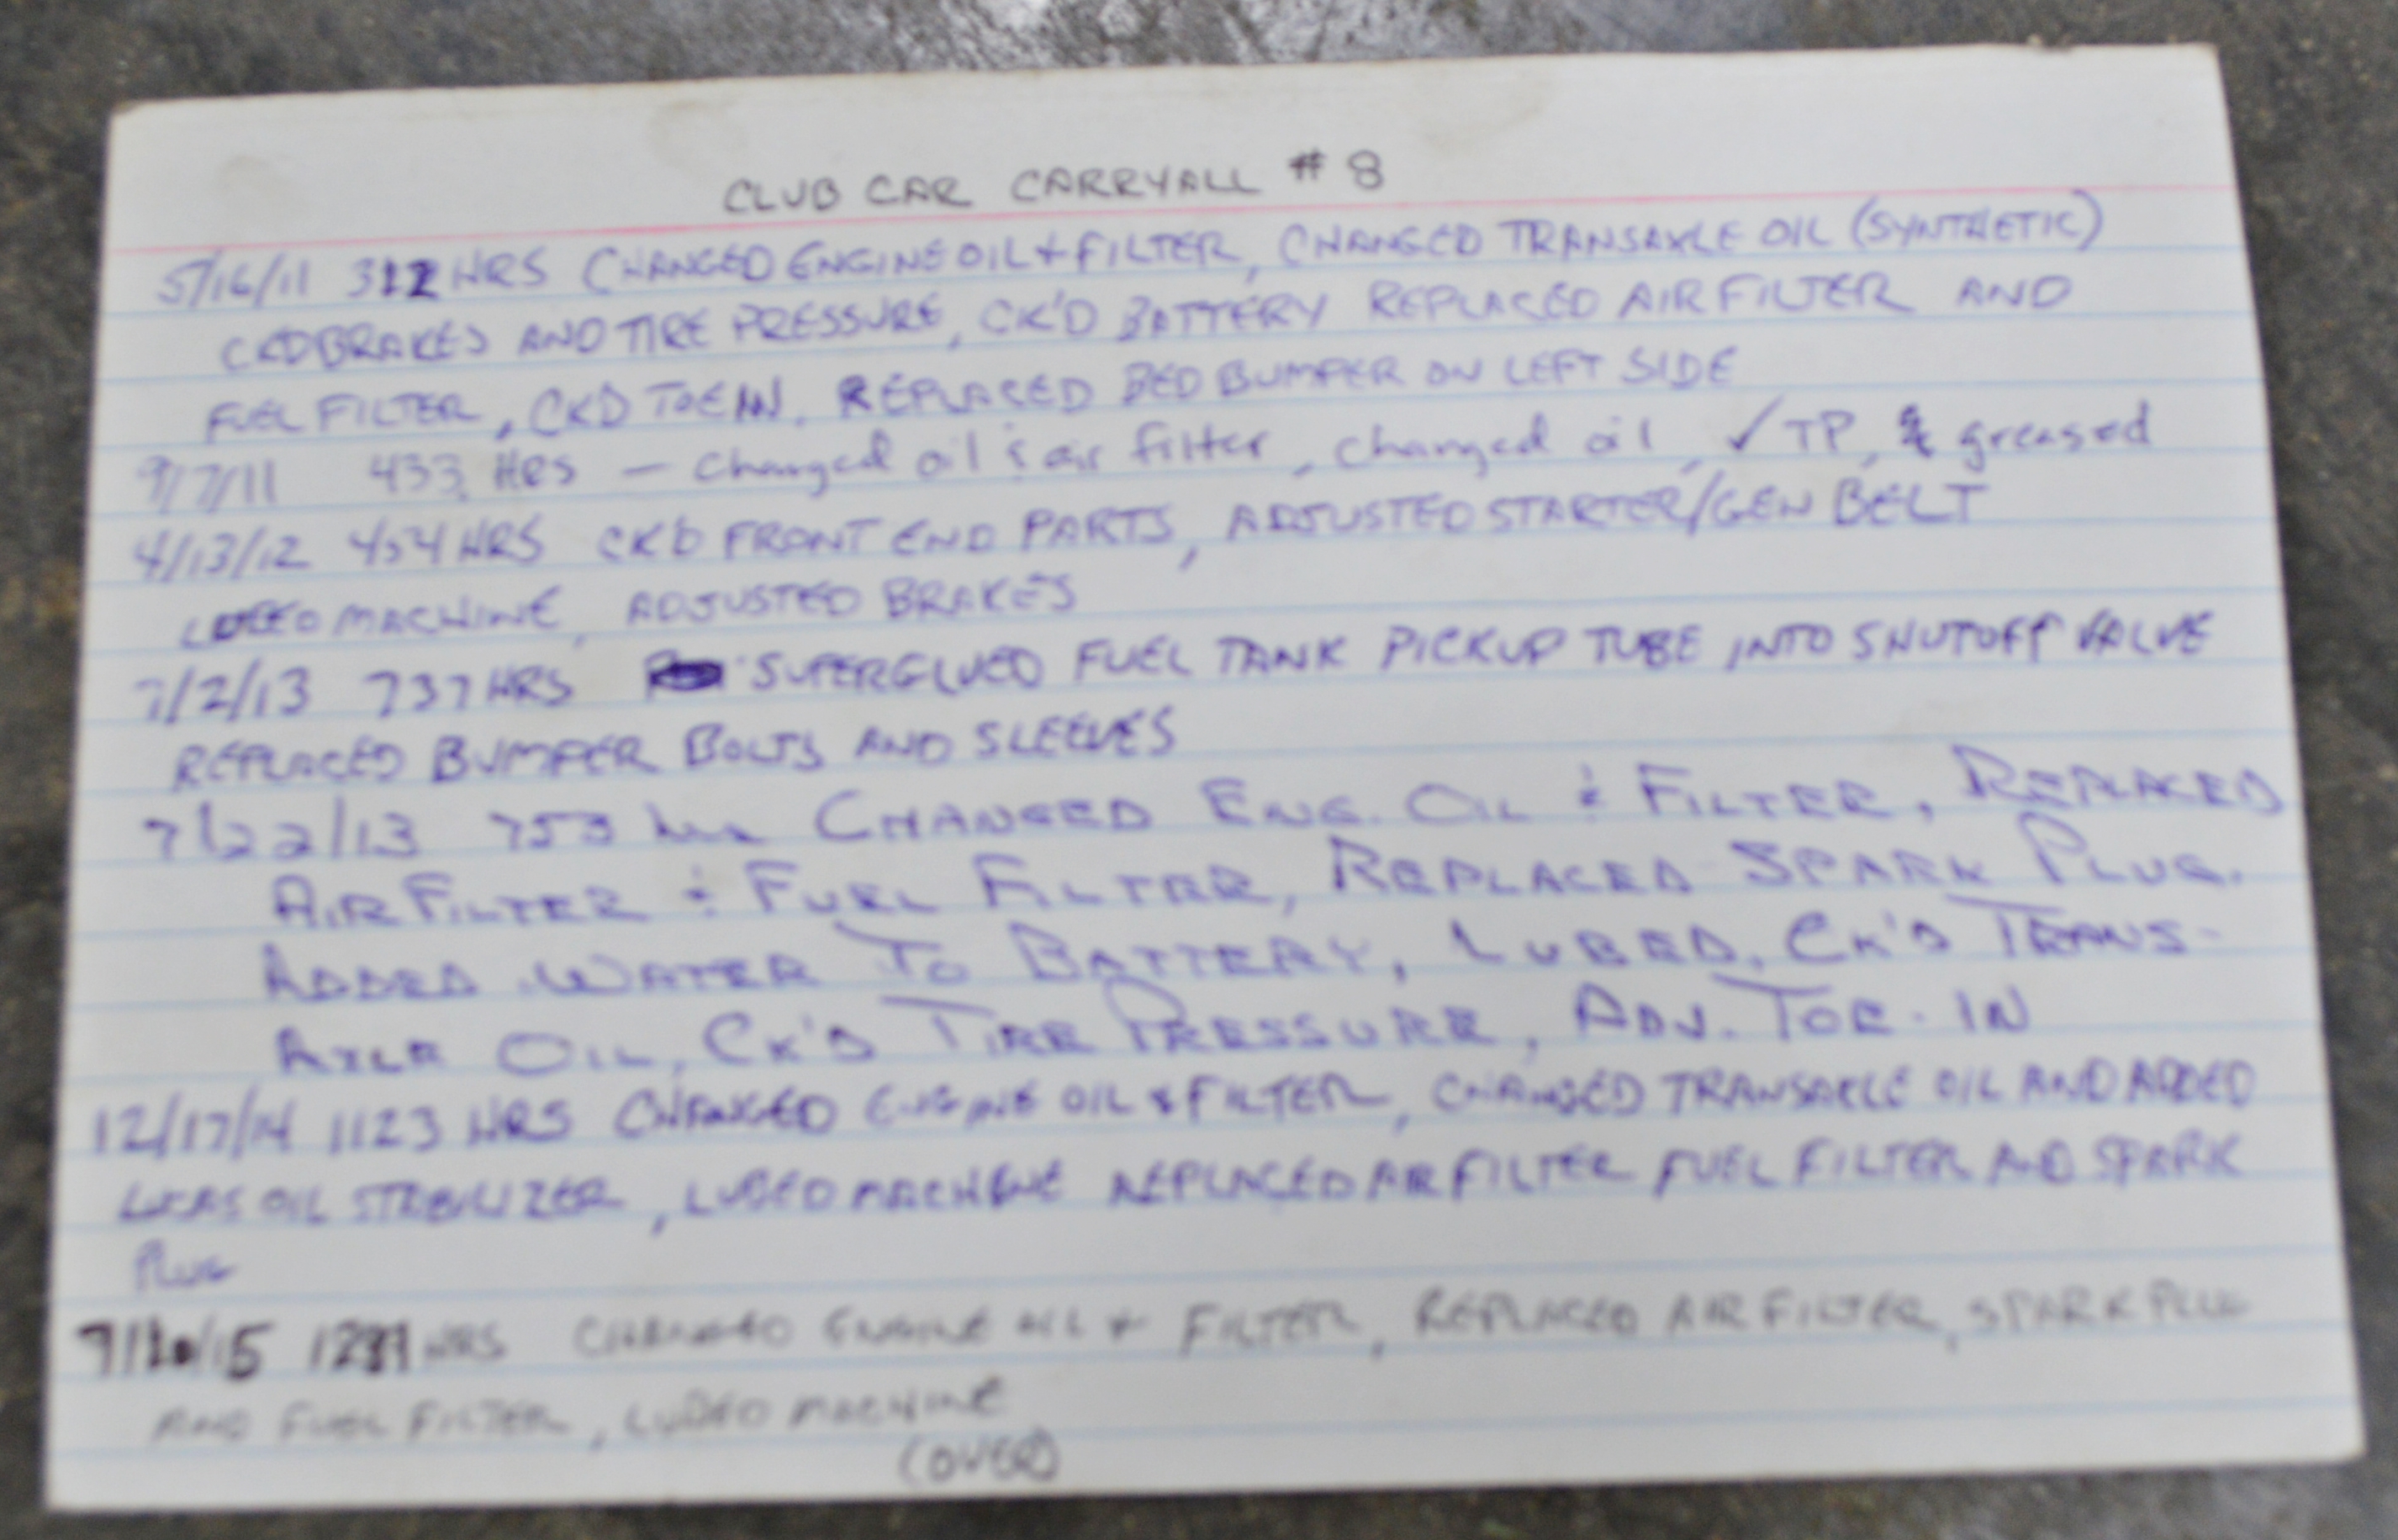 CLUB CAR CARRYALL # 8
5/16/11 312 HRS CHANGED ENGINE OIL + FILTER, CHANGED TRANSAXLE OIL (SYNTHETIC)
CKD BRAKES AND TIRE PRESSURE, CK'D BATTERY REPLACED AIR FILTER AND
FUEL FILTER, CKD TOE IN. REPLACED BED BUMPER ON LEFT SIDE
9/7/11 433 HRS — changed oil & air filter, changed oil, ✓ TP, & greased
4/13/12 HRS CK'D FRONT END PARTS, ADJUSTED STARTER/GEN BELT
LUBED MACHINE, ADJUSTED BRAKES
7/2/13 737 HRS SUPERGLUED FUEL TANK PICKUP TUBE INTO SHUTOFF VALVE
REPLACED BUMPER BOLTS AND SLEEVES
7/22/13 753 hrs CHANGED ENG. OIL & FILTER, REPLACED
AIR FILTER & FUEL FILTER, REPLACED SPARK PLUG.
ADDED WATER TO BATTERY, LUBED, CK'D TRANS-
AXLE OIL, CK'D TIRE PRESSURE, ADJ. TOE-IN
12/17/14 1123 HRS CHANGED ENGINE OIL & FILTER, CHANGED TRANSAXLE OIL AND ADDED
LUCAS OIL STABILIZER, LUBED MACHINE REPLACED AIR FILTER FUEL FILTER AND SPARK
PLUG
HRS CHANGED ENGINE OIL + FILTER, REPLACED AIR FILTER, SPARK PLUG
AND FUEL FILTER, LUBED MACHINE
(OVER)